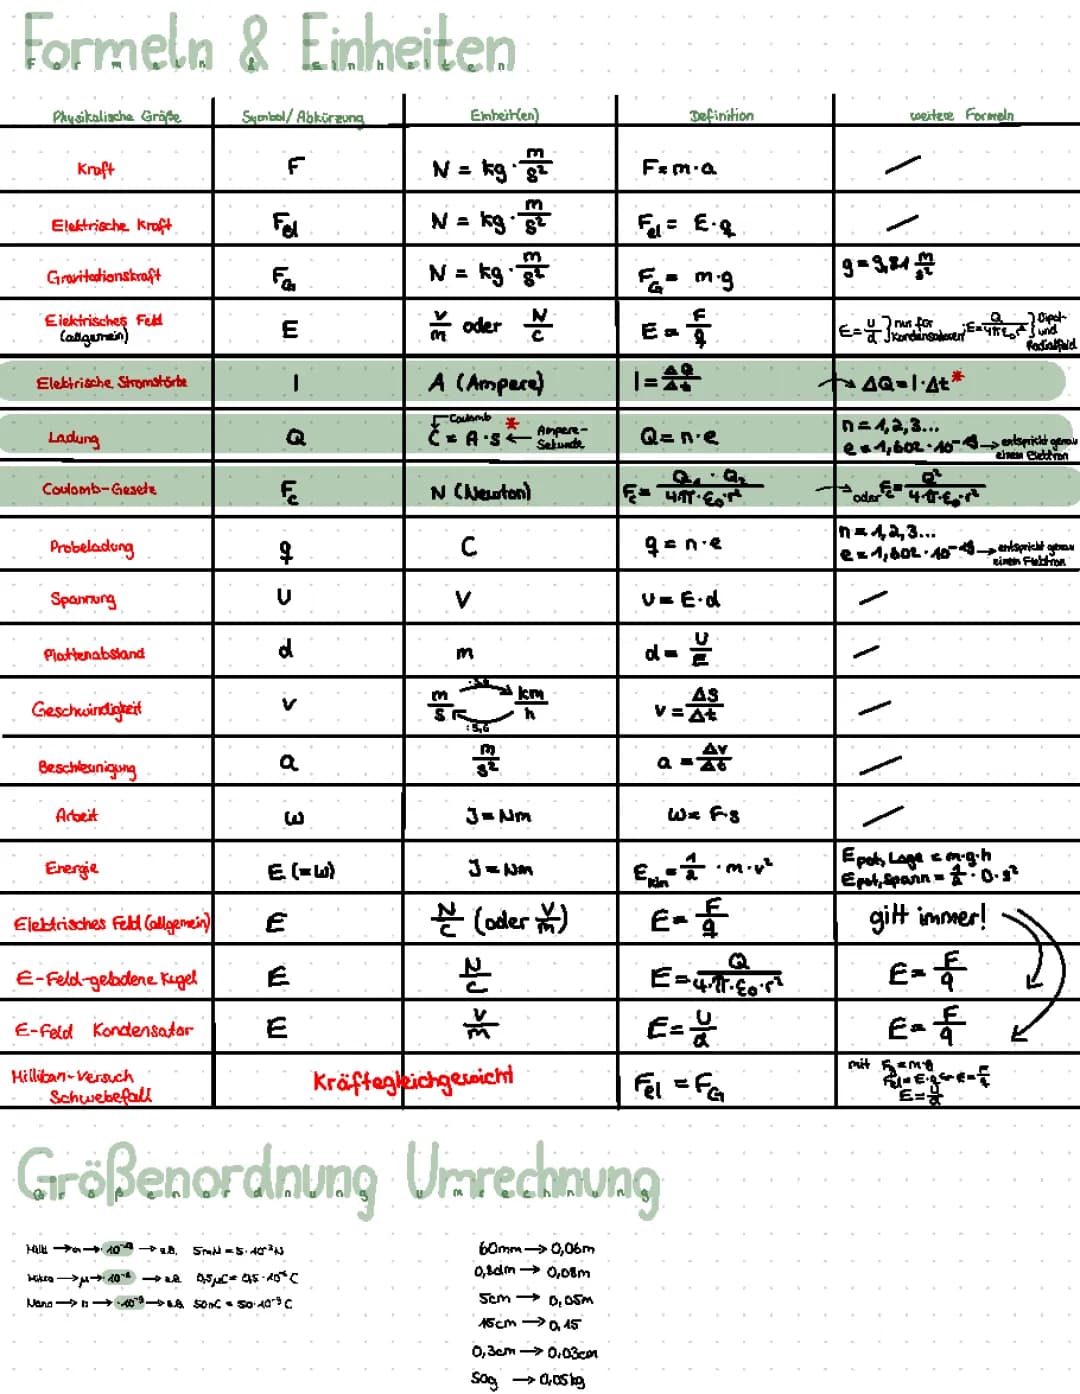 Formeln & Einheiten
Physikalische Größe Symbol/Abkürzung Einheit(en) Definition weitere Formeln
Kraft F N = kg · m/s² F = m·a /
Elektrische Kraft Fel N = kg · m/s² Fel = E·q /
Gravitationskraft FG N = kg · m/s² FG = m·g g = 9,81 m/s²
Elektrisches Feld (allgemein) E V/m oder N/C E = F/q E = U/d } nur für Kondensatoren E = Q/4πε₀r² } Dipol- und Radialfeld
Elektrische Stromstärke I A (Ampere) I = ΔQ/Δt → ΔQ = I·Δt *
Ladung Q C = A·s * ← Ampere-Sekunde Coulomb Q = n·e n = 1,2,3... e = 1,602 · 10⁻¹⁹ → entspricht genau einem Elektron
Coulomb-Gesetz Fc N (Newton) Fc = Q₁ · Q₂/4·π·ε₀·r² → oder Fc = Q²/4·π·ε₀·r²
Probeladung q C q = n·e n = 1,2,3... e = 1,602 · 10⁻¹⁹ → entspricht genau einem Elektron
Spannung U V U = E·d /
Plattenabstand d m d = U/E /
Geschwindigkeit v m/s ·3,6 km/h :3,6 v = Δs/Δt /
Beschleunigung a m/s² a = Δv/Δt /
Arbeit W J = Nm W = F·s /
Energie E (=W) J = Nm Ekin = 1/2 · m·v² Epot, Lage = m·g·h Epot, Spann = 1/2 · D · s²
Elektrisches Feld (allgemein) E N/C (oder V/m) E = F/q gilt immer!
E-Feld-geladene Kugel E N/C E = Q/4·π·ε₀·r² E = F/q
E-Feld Kondensator E V/m E = U/d E = F/q
Millikan-Versuch Schwebefall Kräftegleichgewicht Fel = FG mit FG = m·g Fel = E·q ↔ E = F/q E = U/d
Größenordnung Umrechnung
Milli → m → 10⁻³ → z.B. 5mN = 5·10⁻³N
Mikro → μ → 10⁻⁶ → z.B. 0,5μC = 0,5·10⁻⁶ C
Nano → n → 10⁻⁹ → z.B. 50nC = 50·10⁻⁹ C
60mm → 0,06m
0,8dm → 0,08m
5cm → 0,05m
15cm → 0,15
0,3cm → 0,03cm
50g → 0,05kg